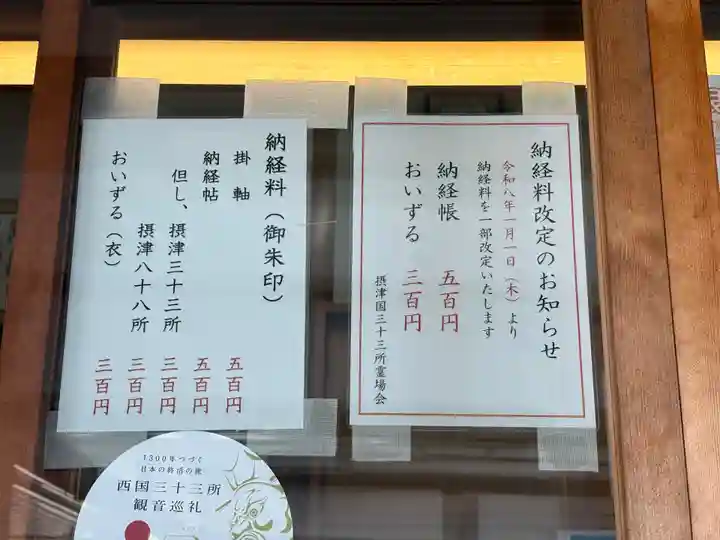 納経料改定のお知らせ
令和八年一月一日（木）より
納経料を一部改定いたします
納経帳 五百円
おいずる 三百円
摂津国三十三所霊場会
納経料（御朱印）
掛 軸 五百円
納経帖 五百円
但し、摂津三十三所 三百円
摂津八十八所 三百円
おいずる（衣） 三百円
1300年つづく
日本の終活の旅
西国三十三所
観音巡礼